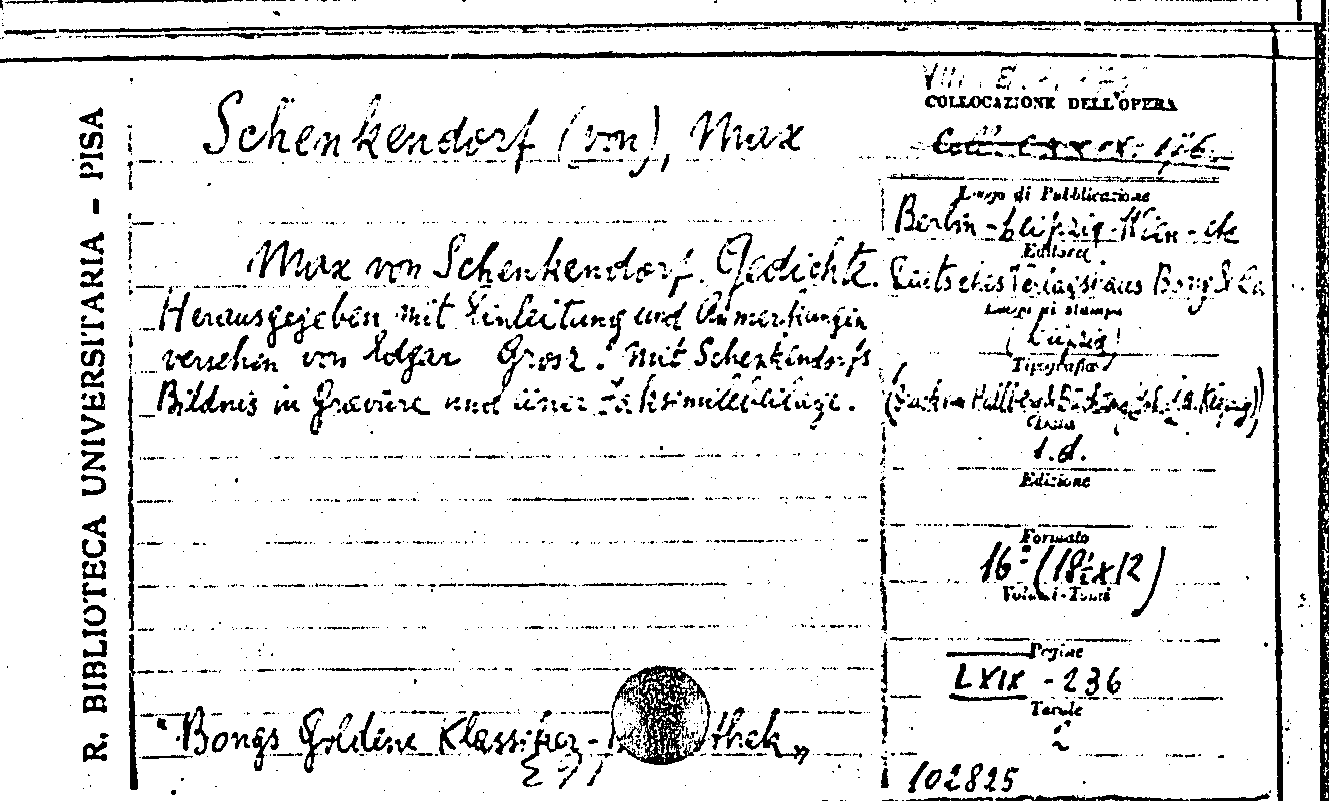 R. BIBLIOTECA UNIVERSITARIA - PISA
COLLOCAZIONE DELL'OPERA
Schenkendorf (von), Max
Luogo di Pubblicazione
Berlin - Leipzig - Wien - etc
Editore
Max von Schenkendorf. Gedichte.
Deutsches Verlagshaus Bong & Co
Herausgegeben mit Einleitung und Anmerkungen
Luogo di stampa
(Leipzig)
versehen von Edgar Grosz. Mit Schenkendorfs
Tipografia
Bildnis in Gravüre und einer Faksimilebeilage.
(Druck von
Data
s.d.
Edizione
Formato
16° (18½x12)
Volumi-Tomi
Pagine
LXIX - 236
Tavole
2
"Bongs Goldene Klassiker- thek"
102825